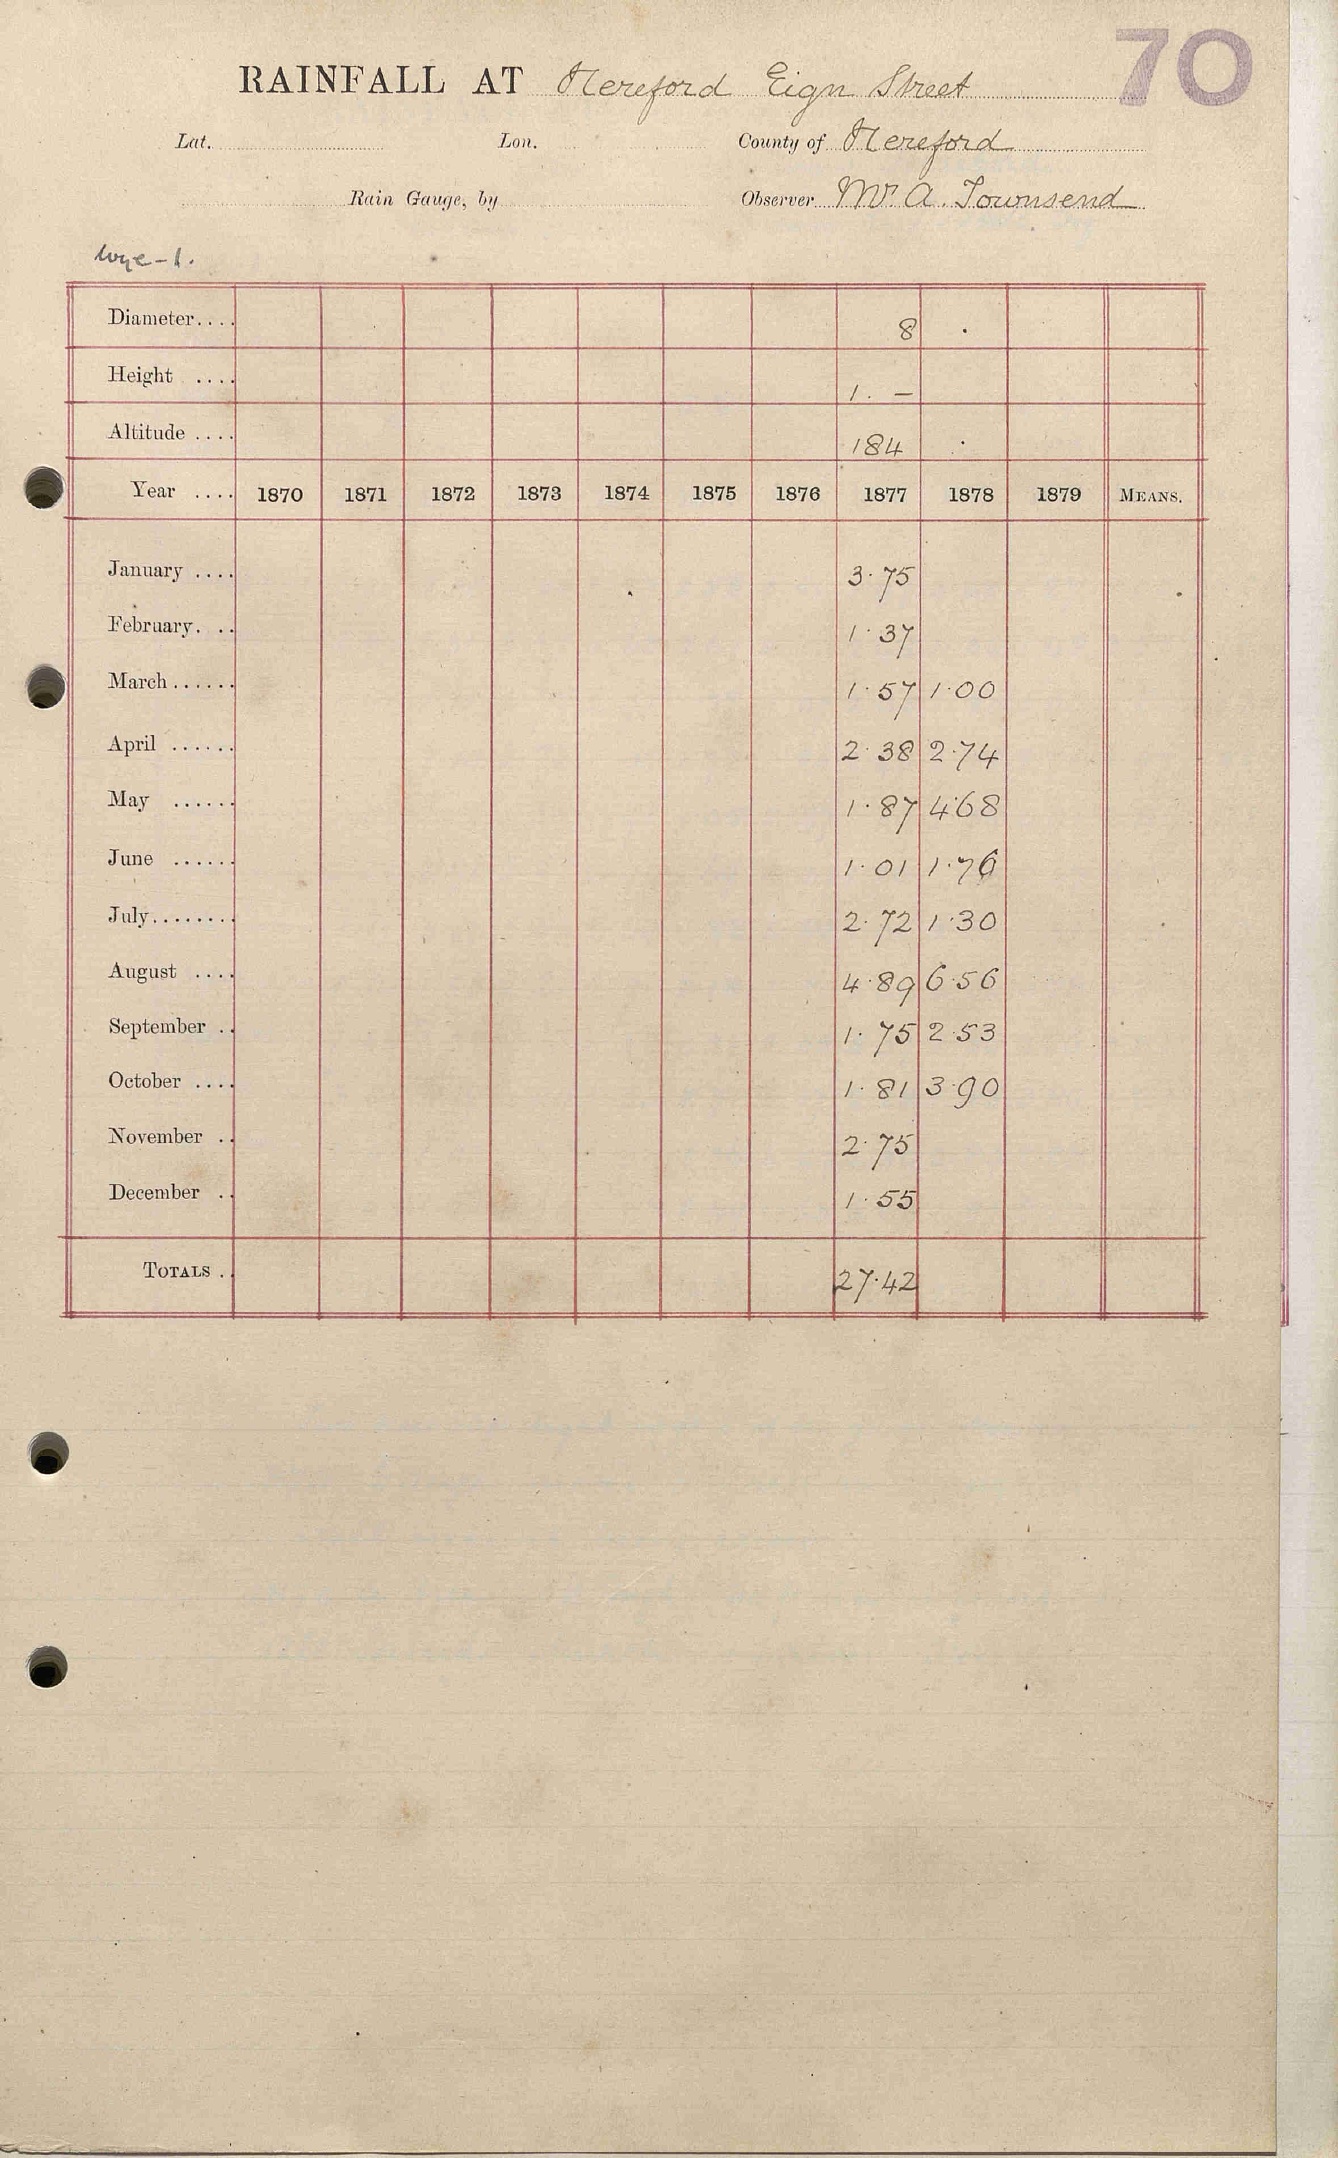 70
RAINFALL AT Hereford Eign Street
Lat. Lon. County of Hereford
Rain Gauge, by Observer Mr A. Townsend
Wye-1.
Diameter.... 8 .
Height .... 1. —
Altitude .... 184 .
Year .... 1870 1871 1872 1873 1874 1875 1876 1877 1878 1879 MEANS.
January .... 3.75
February. .. 1.37
March...... 1.57 1.00
April ...... 2.38 2.74
May ...... 1.87 4.68
June ...... 1.01 1.76
July........ 2.72 1.30
August .... 4.89 6.56
September .. 1.75 2.53
October .... 1.81 3.90
November .. 2.75
December .. 1.55
TOTALS .. 27.42